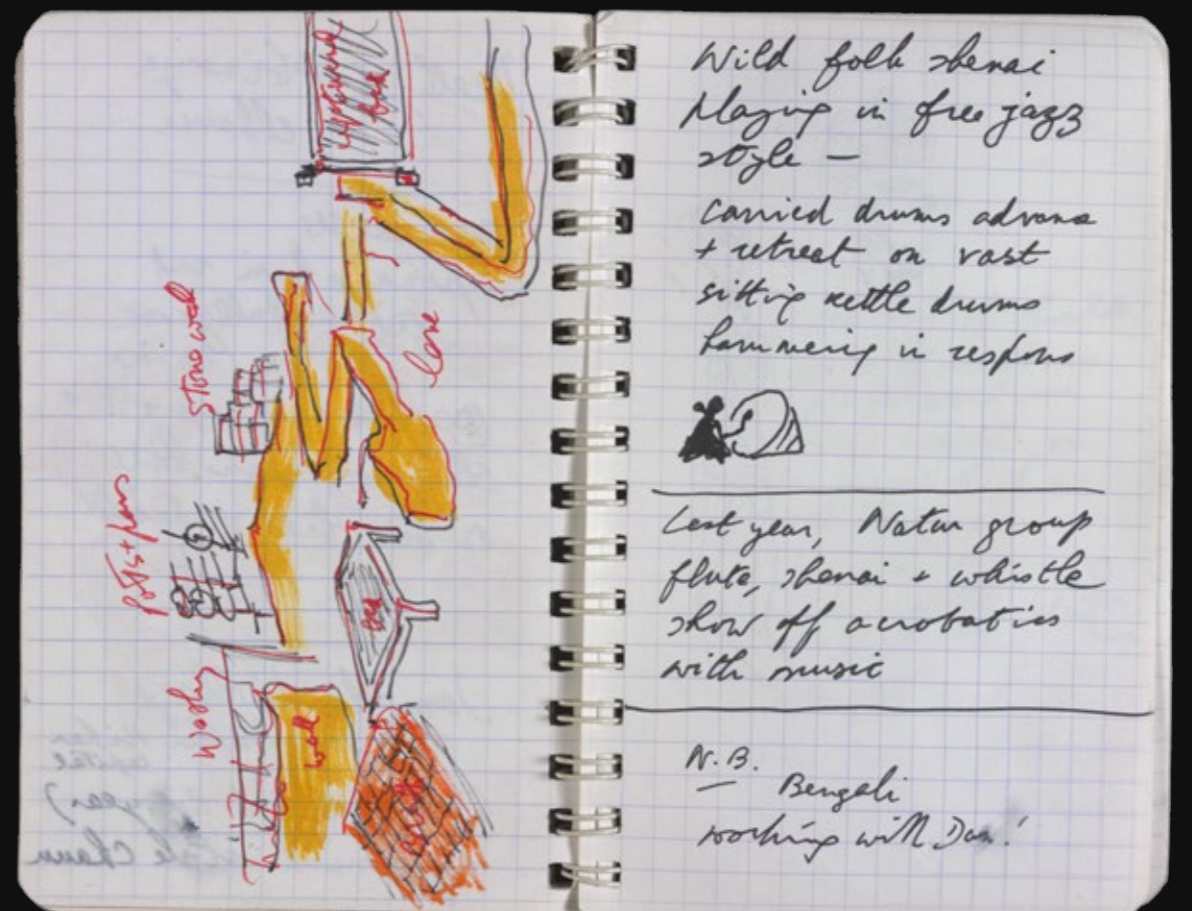 Stone work
lane
Pots + pans
bed
Washing
wall
Wild folk shenai
Playing in free jazz
style —
carried drums advance
+ retreat on vast
sitting kettle drums
hammering in response
Last year, Natun group
flute, shenai + whistle
show off acrobatics
with music
N.B.
Bengali
working with Dan!